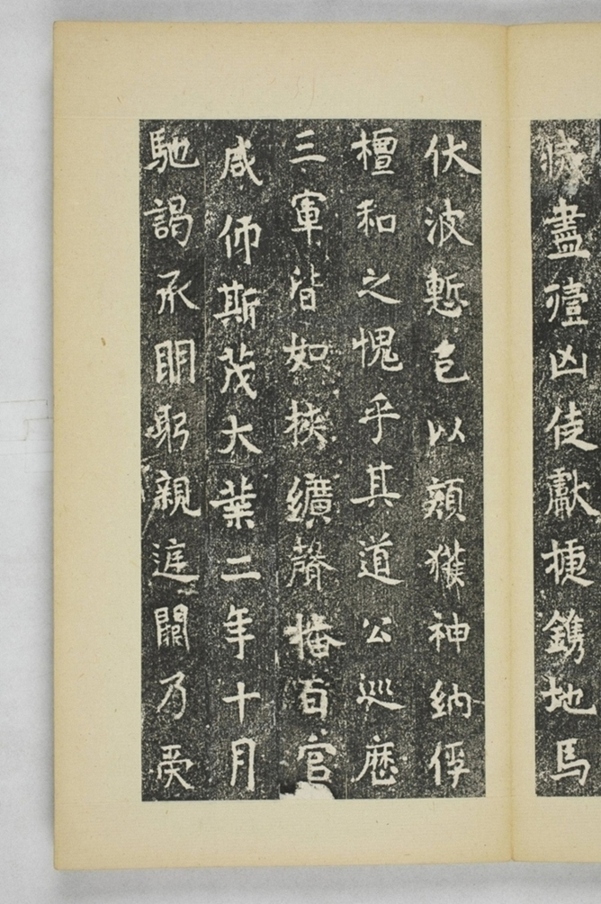 滅盡凶使獻捷鐫地馬
伏波慙色以頹獲神納俘
檀和之愧乎其道公巡歷
三軍皆如挾纊聲播百官
咸師斯茂大業二年十月
馳謁承明躬親庭闕乃受